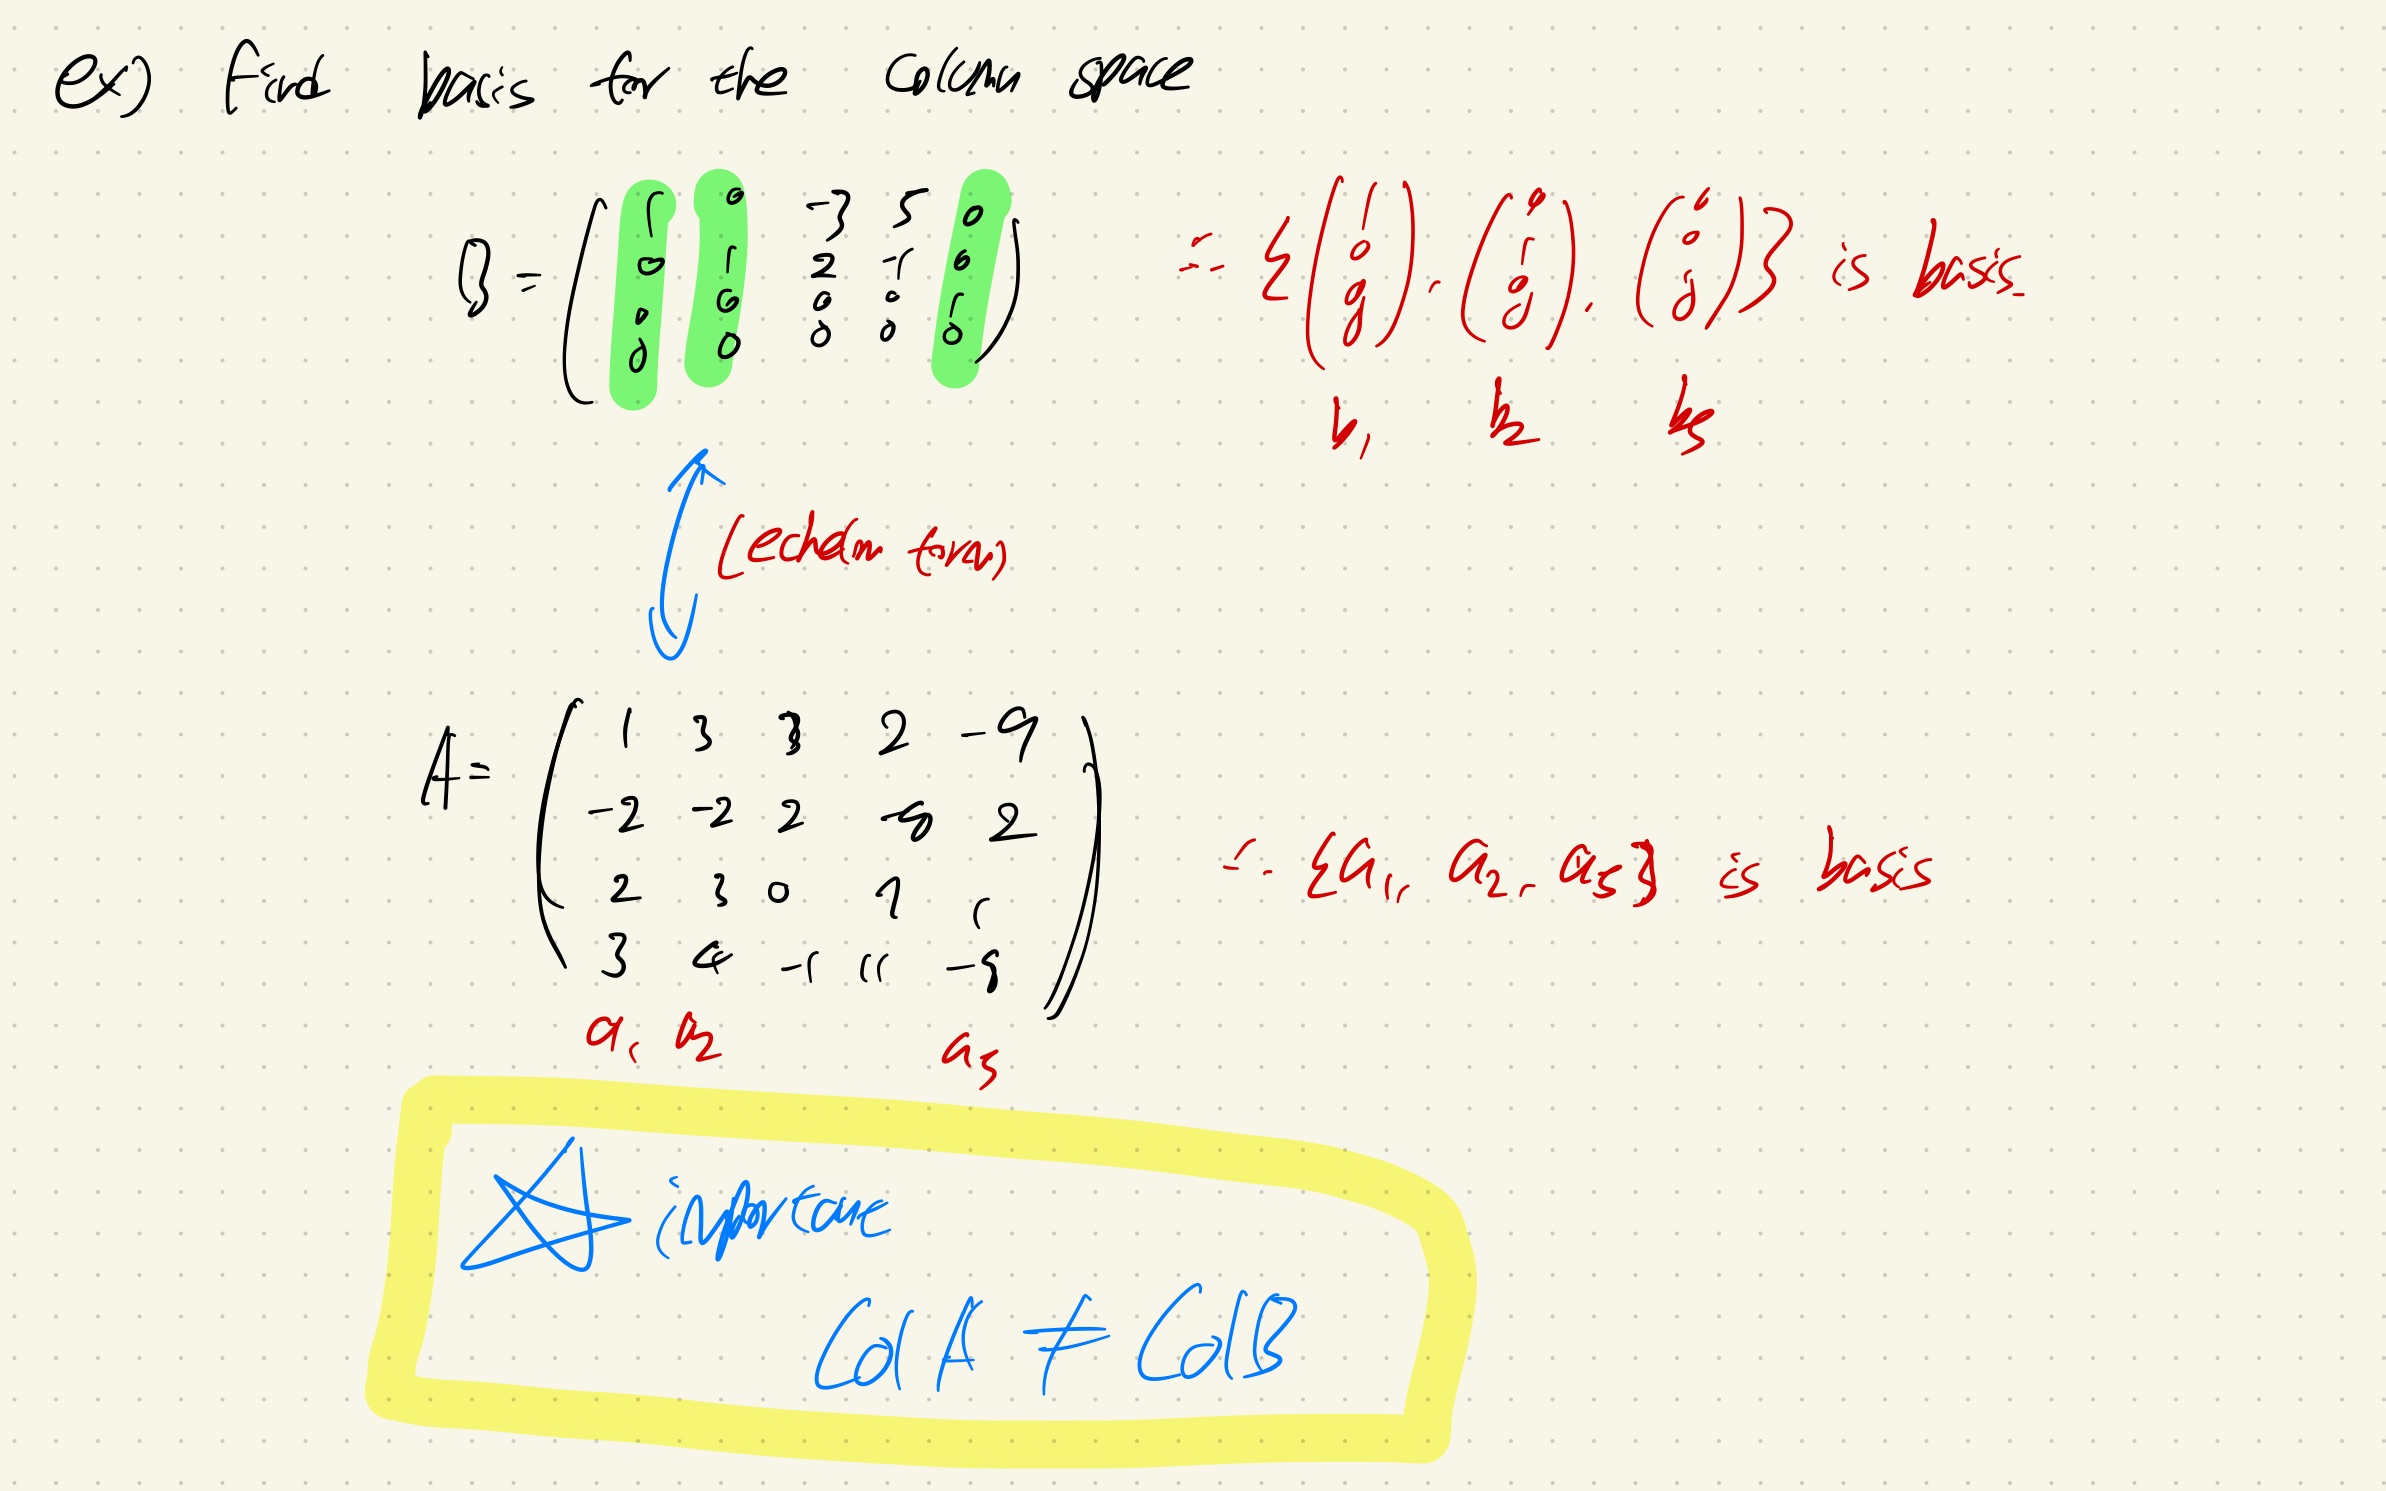 ex) Find basis for the Column space
B = ( 1 0 -3 5 0
0 1 2 -1 0
0 0 0 0 1
0 0 0 0 0 )
∴ { ( 1 0 0 0 ), ( 0 1 0 0 ), ( 0 0 1 0 ) } is basis
b1 b2 b5
(echelon form)
A = ( 1 3 3 2 -9
-2 -2 2 -8 2
2 3 0 7 1
3 4 -1 11 -8 )
a1 a2 a5
∴ {a1, a2, a5} is basis
☆ important
Col A ≠ Col B